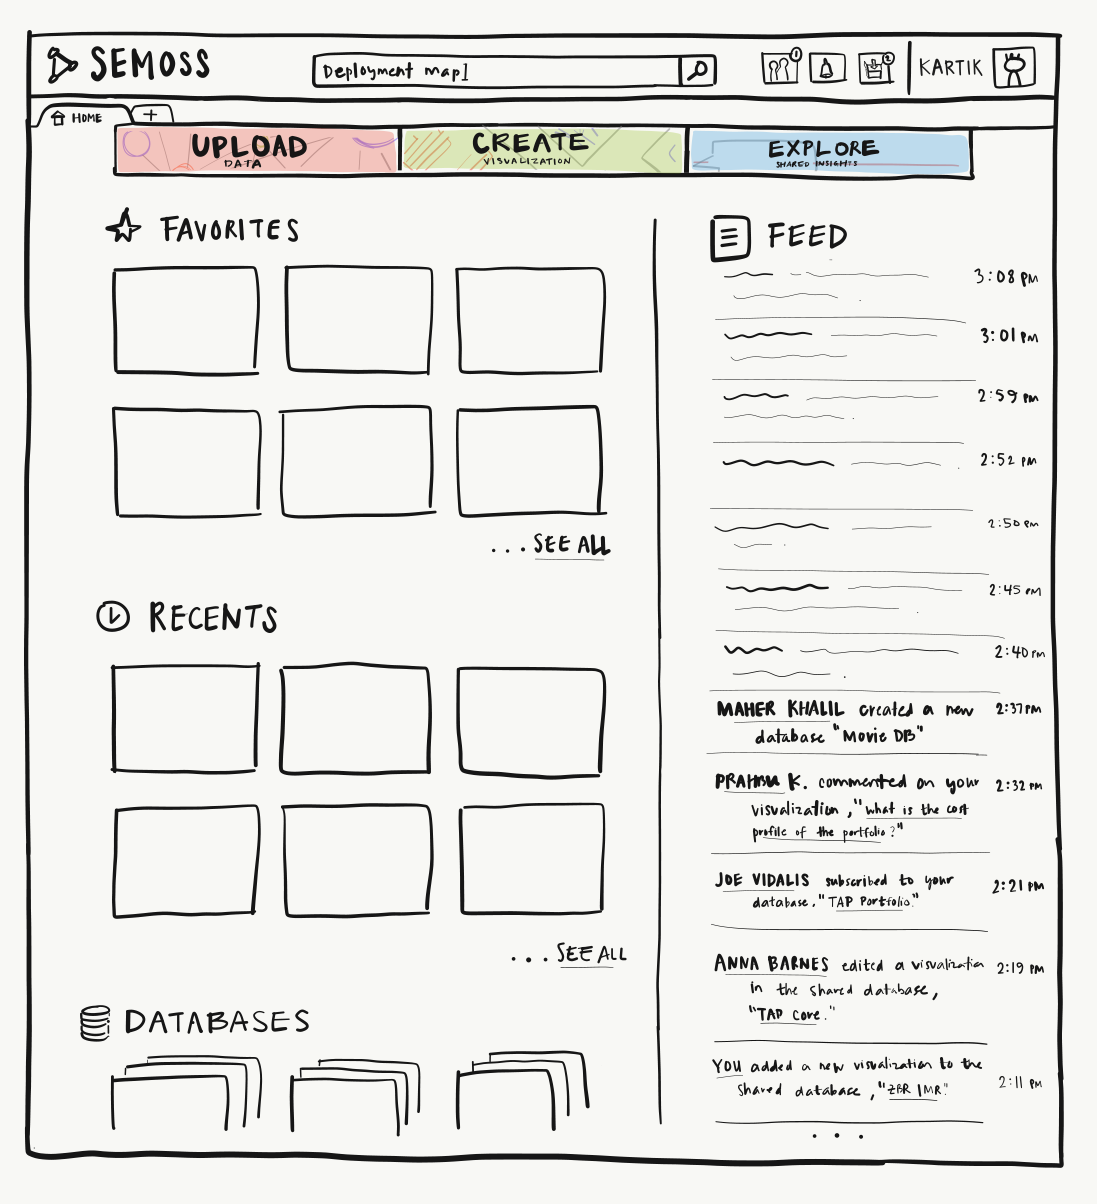 SEMOSS
Deployment map
1
2
KARTIK
HOME
+
UPLOAD
DATA
CREATE
VISUALIZATION
EXPLORE
SHARED INSIGHTS
FAVORITES
...SEE ALL
RECENTS
...SEE ALL
DATABASES
FEED
3:08 PM
3:01 PM
2:59 PM
2:52 PM
2:50 PM
2:45 PM
2:40 PM
MAHER KHALIL created a new 2:37 PM
database "Movie DB"
K. commented on your 2:32 PM
visualization, "what is the cost
profile of the portfolio?"
JOE VIDALIS subscribed to your 2:21 PM
database, "TAP Portfolio."
ANNA BARNES edited a visualization 2:19 PM
in the shared database,
"TAP Core."
YOU added a new visualization to the
shared database, " IMR." 2:11 PM
...